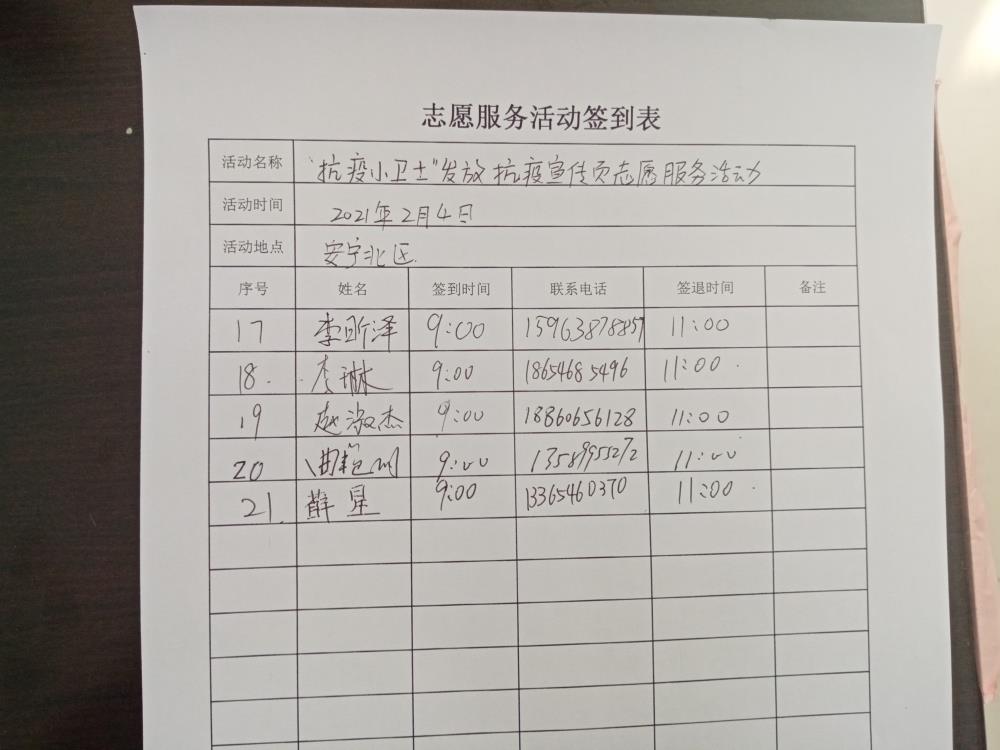 志愿服务活动签到表
活动名称 "抗疫小卫士"发放抗疫宣传页志愿服务活动
活动时间 2021年2月4日
活动地点 安宁北区
序号 姓名 签到时间 联系电话 签退时间 备注
17 李昕泽 9:00 15963878857 11:00
18. 李琳 9:00 18654685496 11:00
19 赵淑杰 9:00 18860656128 11:00
20 9:00 13589955272 11:00
21. 薛星 9:00 13365460370 11:00